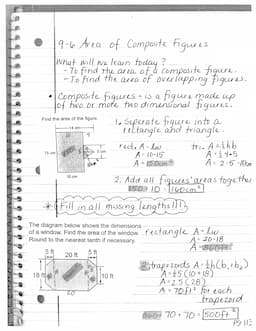 9-6 Area of Composite Figures
What will we learn today?
- To find the area of a composite figure.
- To find the area of overlapping figures.
• Composite figures - is a figure made up
of two or more two dimensional figures.
Find the area of the figure.
1. Seperate figure into a
rectangle and triangle.
rect. A = lw
A = 10·15
tri. A = ½bh
A = ½ 4·5
A = 2·5
15 cm
10 cm
2. Add all figures' areas together
10 = 160cm²
Fill in all missing lengths!!!
The diagram below shows the dimensions
of a window. Find the area of the window.
Round to the nearest tenth if necessary.
rectangle A = lw
A = 20·18
5 ft
20 ft
5 ft
18 ft
10 ft
2 trapezoids A = ½h(b₁+b₂)
A = ½5(10+18)
A = 2.5(28)
A = 70ft² for each
trapezoid
70 + 70 = 500ft²